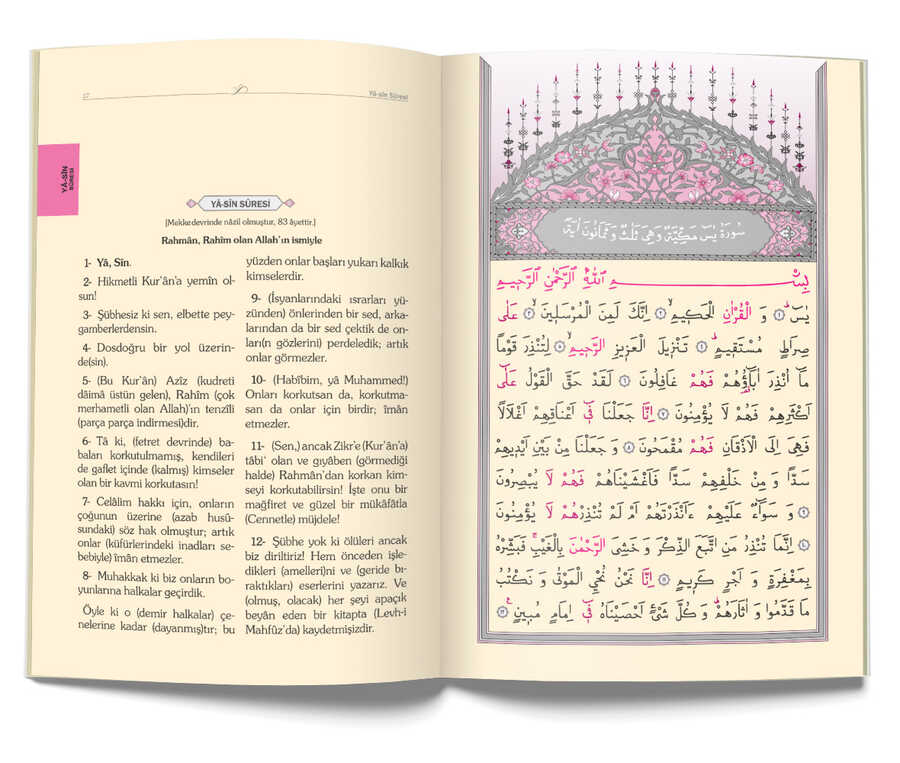 27
Yâ-sîn Sûresi
YÂ-SÎN
SÛRESİ
YÂ-SÎN SÛRESİ
(Mekke devrinde nâzil olmuştur, 83 âyettir.)
Rahmân, Rahîm olan Allah'ın ismiyle
1- Yâ, Sîn.
2- Hikmetli Kur'ân'a yemîn ol-
sun!
3- Şübhesiz ki sen, elbette pey-
gamberlerdensin.
4- Dosdoğru bir yol üzerin-
de(sin).
5- (Bu Kur'ân) Azîz (kudreti
dâimâ üstün gelen), Rahîm (çok
merhametli olan Allah)'ın tenzîli
(parça parça indirmesi)dir.
6- Tâ ki, (fetret devrinde) ba-
baları korkutulmamış, kendileri
de gaflet içinde (kalmış) kimseler
olan bir kavmi korkutasın!
7- Celâlim hakkı için, onların
çoğunun üzerine (azab husû-
sundaki) söz hak olmuştur; artık
onlar (küfürlerindeki inadları se-
bebiyle) îmân etmezler.
8- Muhakkak ki biz onların bo-
yunlarına halkalar geçirdik.
Öyle ki o (demir halkalar) çe-
nelerine kadar (dayanmış)tır; bu
yüzden onlar başları yukarı kalkık
kimselerdir.
9- (İsyanlarındaki ısrarları yü-
zünden) önlerinden bir sed, arka-
larından da bir sed çektik de on-
ları(n gözlerini) perdeledik; artık
onlar görmezler.
10- (Habîbim, yâ Muhammed!)
Onları korkutsan da, korkutma-
san da onlar için birdir; îmân
etmezler.
11- (Sen,) ancak Zikr'e (Kur'ân'a)
tâbi' olan ve gıyâben (görmediği
halde) Rahmân'dan korkan kim-
seyi korkutabilirsin! İşte onu bir
mağfiret ve güzel bir mükâfâtla
(Cennetle) müjdele!
12- Şübhe yok ki ölüleri ancak
biz diriltiriz! Hem önceden işle-
dikleri (amelleri)ni ve (geride bı-
raktıkları) eserlerini yazarız. Ve
(olmuş, olacak) her şeyi apaçık
beyân eden bir kitapta (Levh-i
Mahfûz'da) kaydetmişizdir.
سُورَةُ يٰسٓ مَكِّيَّةٌ وَهِيَ ثَلٰثٌ وَثَمَانُونَ اٰيَةً
بِسْمِ اللّٰهِ الرَّحْمٰنِ الرَّحِيمِ
يٰسٓ ﴿١﴾ وَ الْقُرْاٰنِ الْحَكِيمِ ﴿٢﴾ اِنَّكَ لَمِنَ الْمُرْسَلِينَ ﴿٣﴾ عَلٰى
صِرَاطٍ مُسْتَقِيمٍ ﴿٤﴾ تَنْزِيلَ الْعَزِيزِ الرَّحِيمِ ﴿٥﴾ لِتُنْذِرَ قَوْمًا
مَٓا اُنْذِرَ اٰبَٓاؤُهُمْ فَهُمْ غَافِلُونَ ﴿٦﴾ لَقَدْ حَقَّ الْقَوْلُ عَلٰٓى
اَكْثَرِهِمْ فَهُمْ لَا يُؤْمِنُونَ ﴿٧﴾ اِنَّا جَعَلْنَا فِٓى اَعْنَاقِهِمْ اَغْلَالًا
فَهِىَ اِلَى الْاَذْقَانِ فَهُمْ مُقْمَحُونَ ﴿٨﴾ وَ جَعَلْنَا مِنْ بَيْنِ اَيْدِيهِمْ
سَدًّا وَ مِنْ خَلْفِهِمْ سَدًّا فَاَغْشَيْنَاهُمْ فَهُمْ لَا يُبْصِرُونَ
﴿٩﴾ وَ سَوَٓاءٌ عَلَيْهِمْ ءَاَنْذَرْتَهُمْ اَمْ لَمْ تُنْذِرْهُمْ لَا يُؤْمِنُونَ
﴿١٠﴾ اِنَّمَا تُنْذِرُ مَنِ اتَّبَعَ الذِّكْرَ وَ خَشِىَ الرَّحْمٰنَ بِالْغَيْبِ فَبَشِّرْهُ
بِمَغْفِرَةٍ وَ اَجْرٍ كَرِيمٍ ﴿١١﴾ اِنَّا نَحْنُ نُحْىِ الْمَوْتٰى وَ نَكْتُبُ
مَا قَدَّمُوا وَ اٰثَارَهُمْ وَ كُلَّ شَىْءٍ اَحْصَيْنَاهُ فِٓى اِمَامٍ مُبِينٍ ﴿١٢﴾